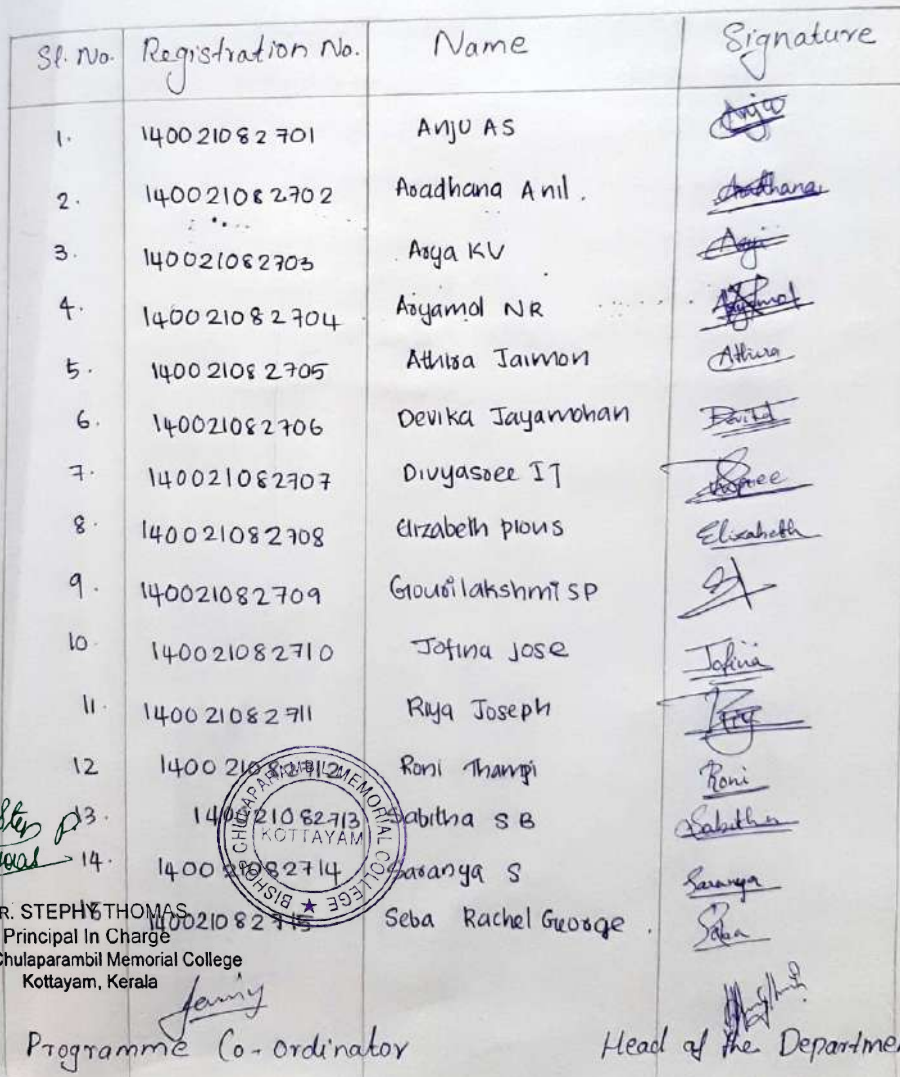 Sl. No. Registration No. Name Signature
1. 140021082701 Anju AS Anju
2. 140021082702 Aradhana Anil. Aradhana
3. 140021082703 Arya KV
4. 140021082704 Aryamol NR Aryamol
5. 140021082705 Athira Jaimon Athira
6. 140021082706 Devika Jayamohan
7. 140021082707 Divyasree IJ
8. 140021082708 Elizabeth pious Elizabeth
9. 140021082709 Gourilakshmi SP
10. 140021082710 Jofina Jose Jofina
11. 140021082711 Riya Joseph
12 140021082712 Roni Thampi Roni
13. 140021082713 Sabitha S B Sabitha
14. 140021082714 Saranya S Saranya
15 140021082715 Seba Rachel George. Seba
BISHOP CHULAPARAMBIL MEMORIAL COLLEGE
KOTTAYAM
R. STEPHY THOMAS
Principal In Charge
Chulaparambil Memorial College
Kottayam, Kerala
Programme Co-ordinator Head of the Departme